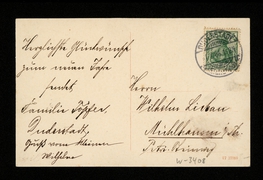 Herzlichste Glückwünsche
zum neuen Jahr
sendet
Familie Töpfer,
Duderstadt,
Gruß vom kleinen
Wilhelm
Herrn
Wilhelm Lintau
Mühlhausen i/Th.
W-3408